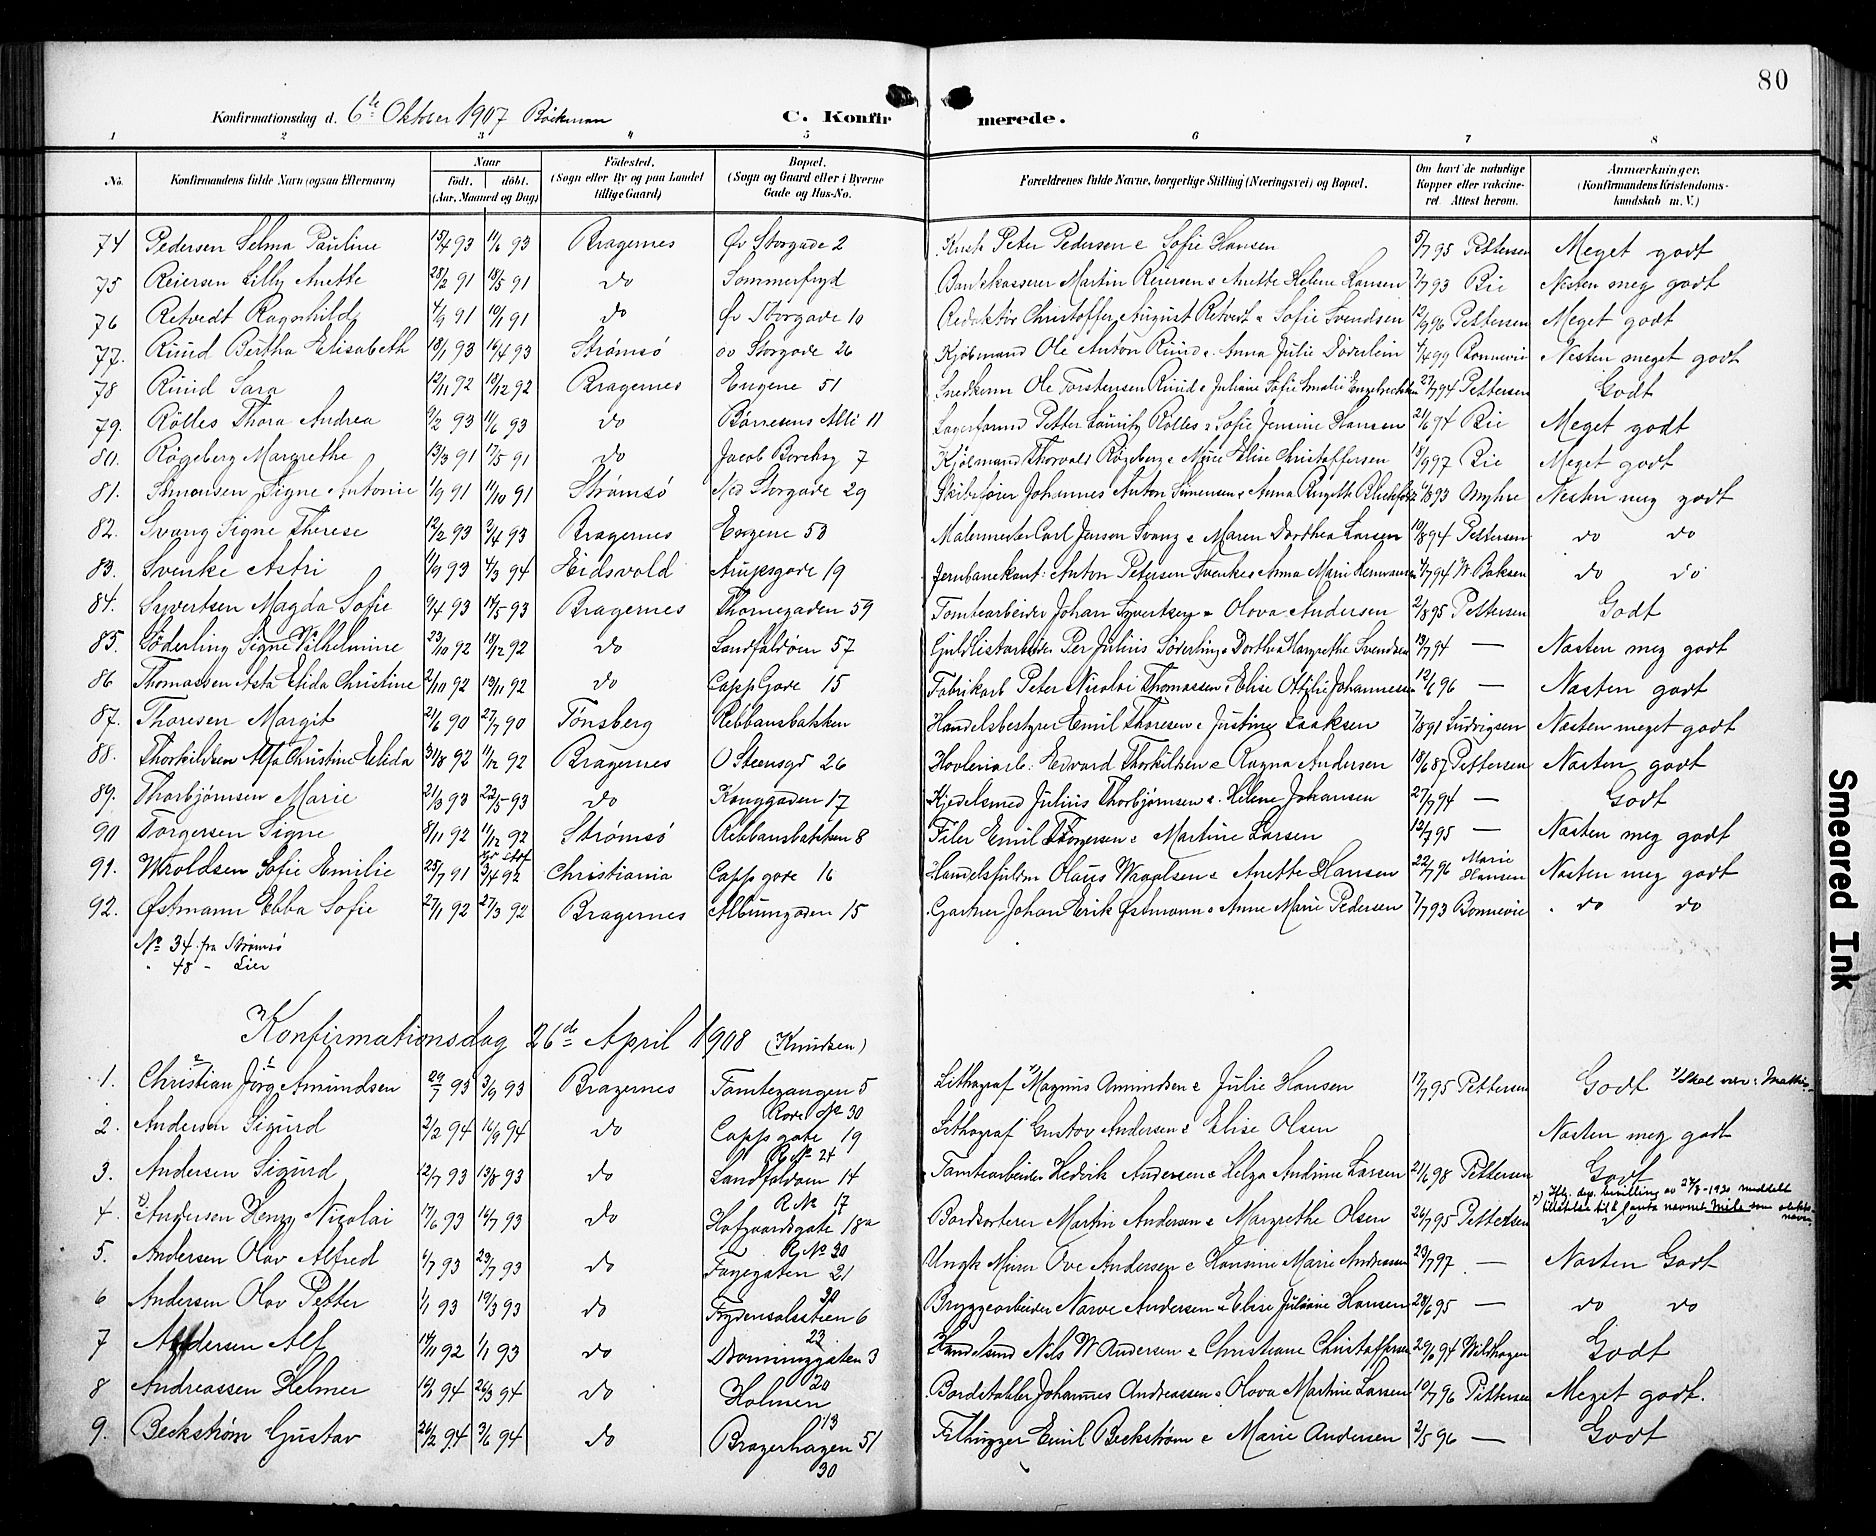 80
Konfirmationsdag d. 6te Oktober 1907 Böckman C. Konfir merede.
1 2 3 4 5 6 7 8
No. Konfirmandens fulde Navn (ogsaa Efternavn) Naar født, døbt. (Aar, Maaned og Dag) Födested, (Sogn eller By og paa Landet tillige Gaard) Bopæl. (Sogn og Gaard eller i Byerne Gade og Hus-No. Forældrenes fulde Navne, borgerlige Stilling (Næringsvei) og Bopæl. Om havt de naturlige Kopper eller vakcineret. Attest herom. Anmærkninger. (Konfirmandens Kristendomskundskab m. V.)
74 Pedersen Selma Pauline 15/4 93 11/6 93 Bragernes Øv Storgade 2 Kusk Peter Pedersen & Sofie Hansen 5/7 95 Pettersen Meget godt
75 Reiersen Lilly Anette 28/2 91 18/5 91 do Sommerfryd Bankkasserer Martin Reiersen & Anette Helene Hansen 7/7 93 Bie Næsten meg godt
76 Retvedt Ragnhild 4/9 91 10/11 91 do Øv Storgade 10 Redaktør Christoffer August Retvedt & Sofie Svendsen 12/9 96 Pettersen Meget godt
77. Ruud Bertha Elisabeth 18/1 93 16/4 93 Strømsö øv Storgade 26 Kjöbmand Ole Anton Ruud & Anna Julie Döderlein 4/4 99 Bonnevie Næsten meget godt
78 Ruud Sara 12/11 72 18/12 92 Bragernes Engene 51 Snedkerm Ole Torstensen Ruud & Juliane Sofie Amalie Engebretsen 27/7 94 Pettersen Godt
79. Rölles Thora Andrea 9/2 93 11/6 93 do Börnesens Allé 11 Lagerformd Petter Lauritz Rölles & Sofie Jensine Hansen 21/6 94 Bie Meget godt
80. Rögeberg Margrethe 13/3 91 17/5 91 do Jacob Borchsg 7 Kjöbmand Thorvald Rögeberg & Marie Elise Christoffersen 15/9 97 Bie Meget godt
81. Simonsen Signe Antonie 1/9 91 11/10 91 Strømsö Ned Storgade 29 Skibsförer Johannes Anton Simonsen & Anna Birgitte 93 Myhre Næsten meg godt
82. Svang Signe Therese 12/2 93 3/4 93 Bragernes Engene 53 Malermester Carl Jensen Svang & Maren Dorthea Larsen 10/8 94 Pettersen do do
83. Svenke Astri 11/9 93 4/3 94 Eidsvold Arupsgade 19 Jernbanekont: Anton Petersen Svenke & Anna Marie Hermansen 7/7 94 W. Baksen do do
84. Syvertsen Magda Sofie 9/4 93 14/5 93 Bragernes Thornegaden 59 Tomtearbeider Johan Syvertsen & Olava Andersen 2/8 95 Pettersen Godt
85. Söderling Signe Vilhelmine 23/10 92 18/12 92 do Landfaldöen 57 Guldlistarbeider Per Julius Söderling & Dorthe Margrethe Svendsen 13/7 94 — Næsten meg godt
86 Thomassen Asta Elida Christine 2/10 92 13/11 92 do Cappgade 15 Fabrikarb Peter Nicolai Thomassen & Elise Otilie Johannesen 12/6 96 — Næsten godt
87. Thoresen Margit 21/6 90 27/7 90 Tönsberg Rebbansbakken Handelsbestyrer Emil Thoresen & Justine Isaksen 7/8 91 Ludvigsen Næsten meget godt
88. Thorkildsen Alfa Christine Elida 31/8 92 11/12 92 Bragernes O Steensgd 26 Hovleriarb: Edvard Thorkildsen & Ragna Andersen 18/6 87 Pettersen Næsten godt
89. Thorbjörnsen Marie 21/3 93 22/5 93 do Konggaden 17 Kjedelsmed Julius Thorbjörnsen & Helene Johansen 27/7 94 — Godt
90 Torgersen Signe 8/11 92 11/12 92 Strømsö Rebbansbakken 8 Filer Emil Torgersen & Martine Larsen 12/7 95 — Næsten meg godt
91. Wroldsen Sofie Emilie 25/7 91 3/4 92 Christiania Capp gade 16 Handelsfuldm Olaus Wroldsen & Anette Hansen 22/7 96 Marie Hansen Næsten meg godt
92. Østmann Ebba Sofie 27/1 92 27/3 92 Bragernes Albumgaden 15 Gartner Johan Erik Østmann & Anne Marie Pedersen 7/7 93 Bonnevie do do
No 34 fra Strømsö
" 48 - Lier
Konfirmationsdag 26de April 1908 (Knudsen)
1. Christian Jörg Amundsen 29/7 93 3/9 93 Bragernes Tomtegangen 5 Lithograf Magnus Amundsen & Julie Hansen 17/7 95 Pettersen Godt
Rode No 30
2. Andersen Sigurd 2/2 94 16/9 94 do Cappgate 19 Lithograf Gustav Andersen & Elise Olsen Næsten meg godt
R No 24
3. Andersen Sigurd 12/7 93 13/8 93 do Landfaldöen 14 Tomtearbeider Hedrik Andersen & Helga Andrine Larsen 21/6 98 Pettersen Godt
R No 17
4. Andersen Henry Nicolai 17/6 93 16/7 93 do Hofgaardsgate 18a Bordsorterer Martin Andersen & Margrethe Olsen 26/7 95 Pettersen
R No 20
5. Andersen Olav Alfred 6/7 93 23/7 93 do Fagegaten 21 Murm Ove Andersen & Hansine Marie Andreasen 23/7 97 — Næsten Godt
30
6 Andersen Olav Petter 1/1 93 19/3 93 do Frydendalsstien 6 Bryggearbeider Narve Andersen & Elise Juliane Hansen 28/6 95 — do do
22
7 Andersen Alf 14/11 92 1/1 93 do Dronninggaten 3 Handelsmd Nils W Andersen & Christiane Christoffersen 29/6 94 Wildhagen Godt
20
8 Andreassen Helmer 94 26/3 94 do Holmen Bordstabler Johannes Andreassen & Olava Martine Larsen 10/7 96 Pettersen Meget godt.
13
9. Beckstrøm Gustav 26/2 94 3/6 94 do Bragerhagen 51 Filhugger Emil Beckstrøm & Marie Andersen 2/5 96 — Godt
30
Smeared Ink